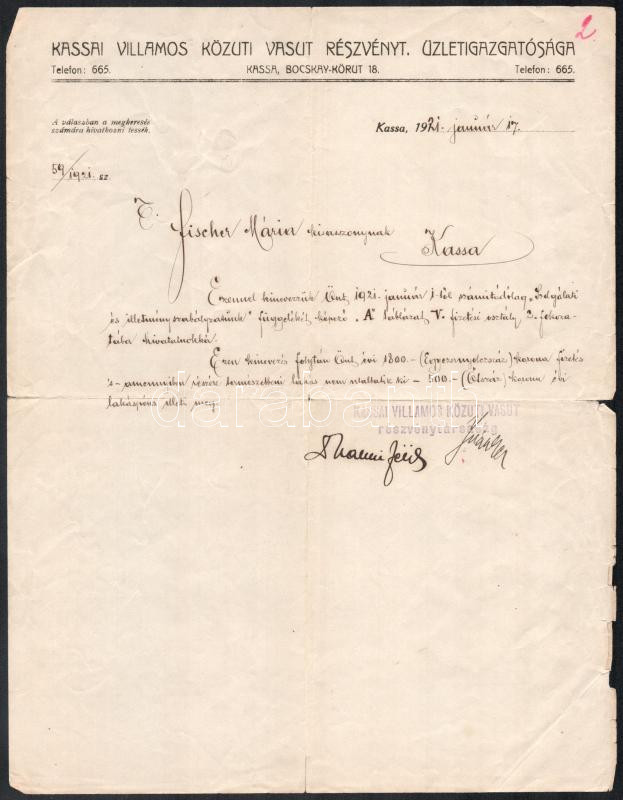 2
KASSAI VILLAMOS KÖZUTI VASUT RÉSZVÉNYT. ÜZLETIGAZGATÓSÁGA
Telefon: 665. KASSA, BOCSKAY-KÖRUT 18. Telefon: 665.
A válaszban a megkeresés
számára hivatkozni tessék.
Kassa, 1921. január 17.
59/1921. sz.
T. Fischer Mária kisaszonynak
Kassa
Ezennel kinevezzük Önt 1921. január 1-től számítódólag „Szolgálati
és illetményszabályzatunk" függelékét képező „A" táblázat V. fizetési osztály 2. fokoza-
tába hivatalnokká.
Ezen kinevezés folytán Önt évi 1800.- (Egyezernyolcszáz) korona fizetés
s - amennyiben részére természetbeni lakás nem utaltatik ki - 500.- (Ötszáz) korona évi
lakáspénz illeti meg.
KASSAI VILLAMOS KÖZUTI VASUT
részvénytársaság
darabanth